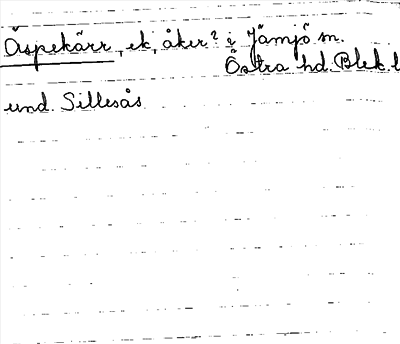 Äspekärr, ek, åker? i Jämjö sn.
Östra hd. Blek. l
und. Sillesås